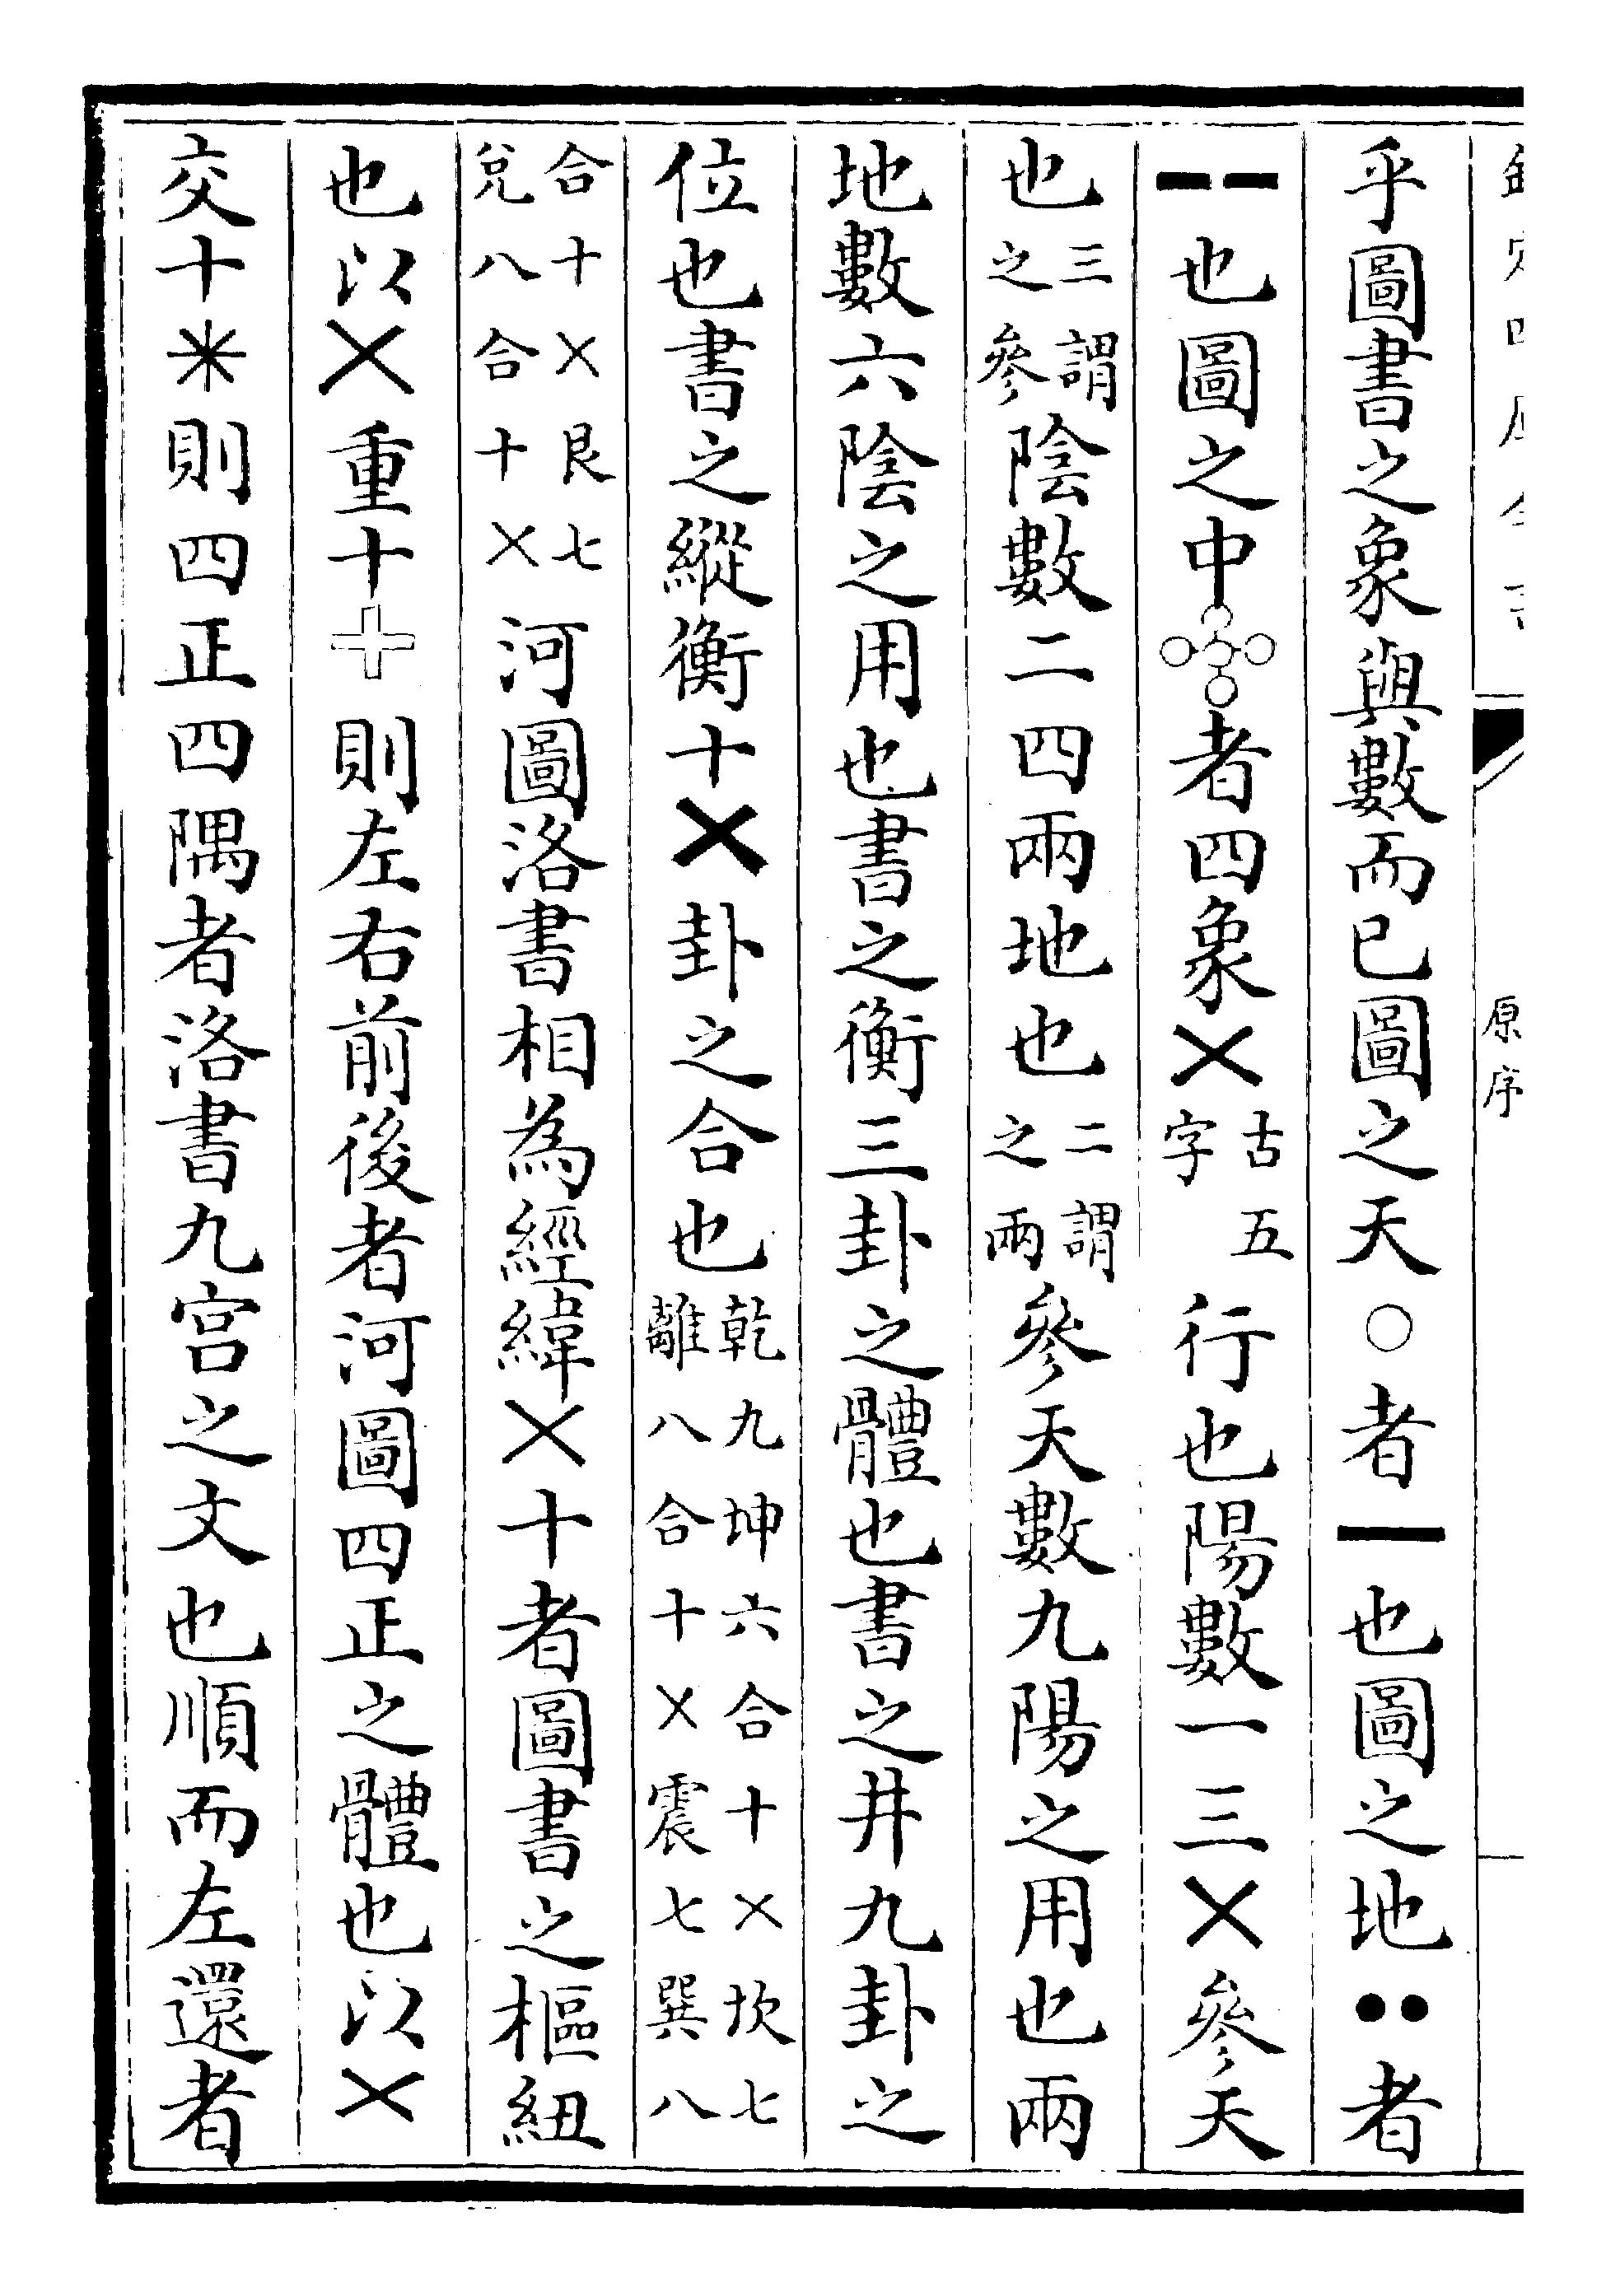 原序
乎圖書之象與數而已圖之天○者⚊也圖之地●●者
⚋也圖之中者四象㐅古五字行也陽數一三㐅參天
也三謂之參陰數二四兩地也二謂之兩參天數九陽之用也兩
地數六陰之用也書之衡三卦之體也書之井九卦之
位也書之縱衡十㐅卦之合也乾九坤六合十㐅坎七離八合十㐅震七巽八
合十㐅艮七兌八合十㐅河圖洛書相為經緯㐅十者圖書之樞紐
也以㐅重十十則左右前後者河圖四正之體也以㐅
交十米則四正四隅者洛書九宮之文也順而左還者